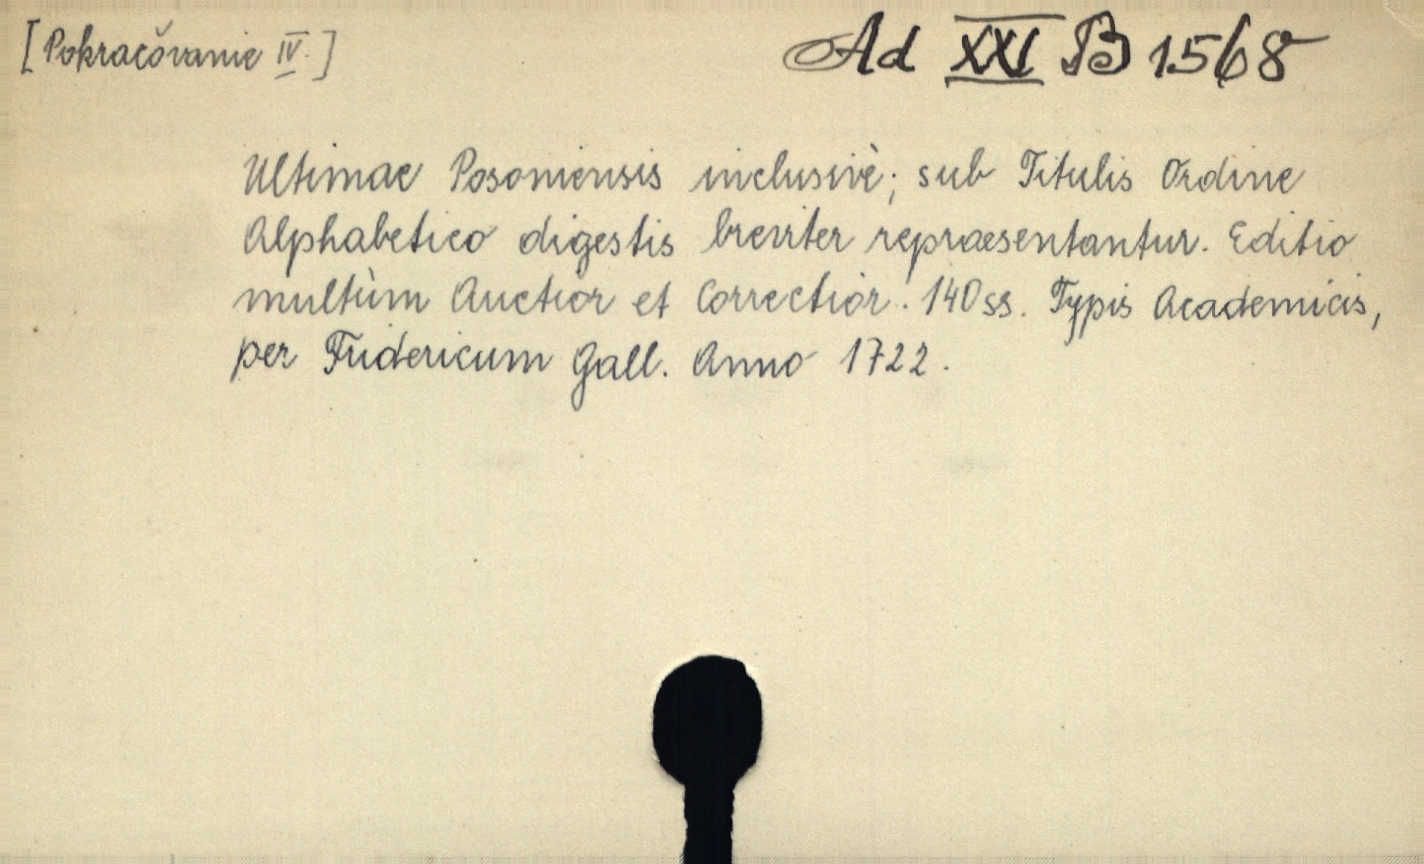 [Pokračovanie IV.]
Ad XXI B 1568
Ultimae Posoniensis inclusivè; sub Titulis Ordine
Alphabetico digestis breviter repraesentantur. Editio
multùm Auctior et Correctior. 140 ss. Typis Academicis,
per Fridericum Gall. Anno 1722.